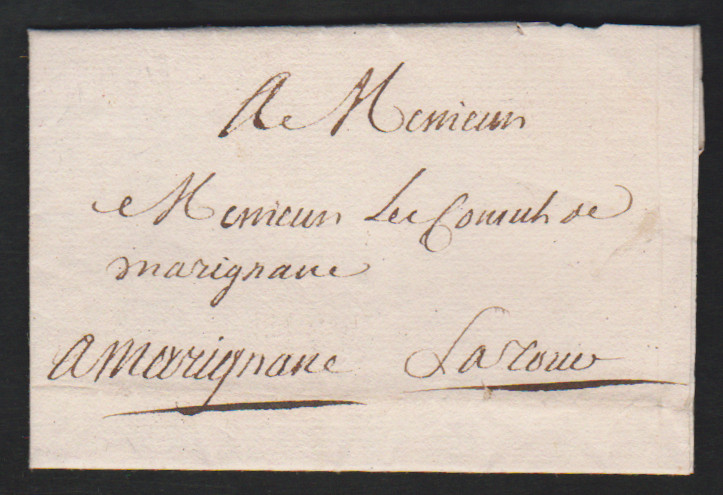 A Messieurs
Messieurs Les Consuls de
marignane
A marignane